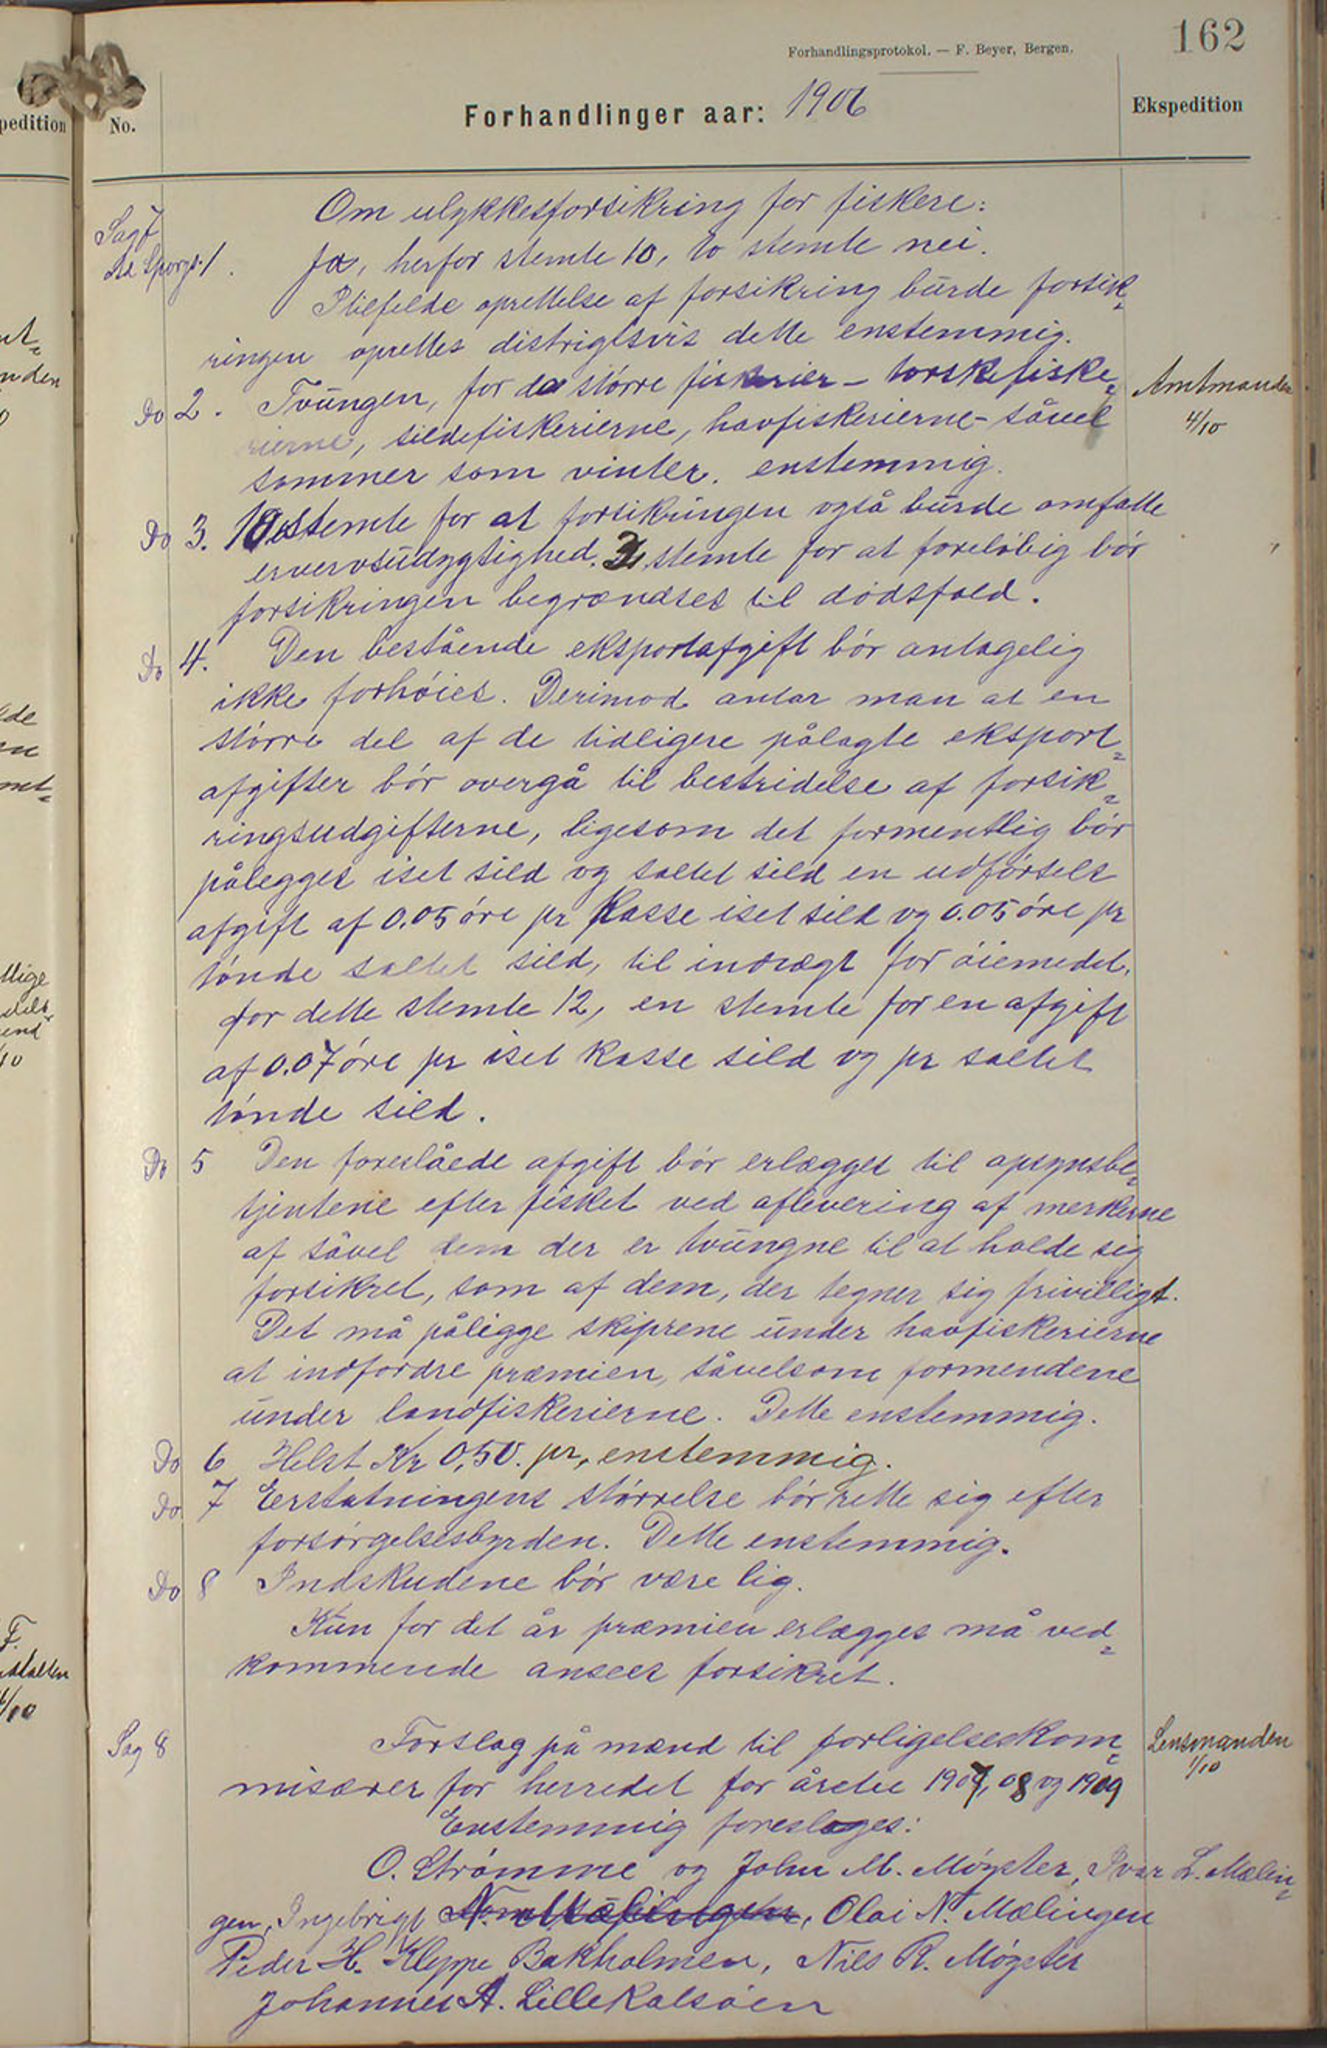 162
Forhandlingsprotokol. — F. Beyer, Bergen.
Forhandlinger aar: 1906
Ekspedition
pedition
No.
Sag 7 Om ulykkesforsikring for fiskere:
Ad Spørgs. 1. Ja, herfor stemte 10, to stemte nei.
I tilfelde oprettelse af forsikring burde forsik-
ringen oprettes distrigtsvis dette enstemmig.
Do 2. Tvungen, for de større fiskerier - torskefiske-
rierne, sildefiskerierne, havfiskerierne - såvel
sommer som vinter. enstemmig.
Amtmanden
4/10
Do 3. 10 stemte for at forsikringen også burde omfatte
ervervsudygtighed. 3 stemte for at foreløbig bør
forsikringen begrændses til dødsfald.
Do 4. Den bestående eksportafgift bør antagelig
ikke forhøies. Derimod antar man at en
større del af de tidligere pålagte eksport-
afgifter bør overgå til bestridelse af forsik-
ringsudgifterne, ligesom det formentlig bør
pålegges iset sild og saltet sild en udførsels
afgift af 0.05 øre pr Kasse iset sild og 0.05 øre pr
tønde saltet sild, til indtægt for øiemedet.
For dette stemte 12, en stemte for en afgift
af 0.07 øre pr iset kasse sild og pr saltet
tønde sild.
Do 5 Den foreslåede afgift bør erlægges til opsynsbe-
tjentene efter fisket ved aflevering af merkerne
af såvel dem der er tvungne til at holde sig
forsikret, som af dem, der tegner sig frivilligt.
Det må påligge skiprene under havfiskerierne
at indfordre præmien, såvelsom formendene
under landfiskerierne. Dette enstemmig.
Do 6 Helst Kr 0,50. pr, enstemmig.
Do 7 Eerstatningens størrelse bør rette sig efter
forsørgelsesbyrden. Dette enstemmig.
Do 8 Indskudene bør være lig.
Kun for det år præmien erlægges må ved-
kommende ansees forsikret.
Sag 8 Forslag på mænd til forligelseskom-
misærer for herredet for årene 1907, 08 og 1909
Lensmanden
1/10
Enstemmig foreslages:
O. Strømme og John M. Møgster, Ivar L. Mælin-
gen, Ingebrigt N. Mælingen, Olai N. Mælingen
Peder H. Kleppe Bakholmen, Nils R. Møgster
Johannes A. Lillekalsøen